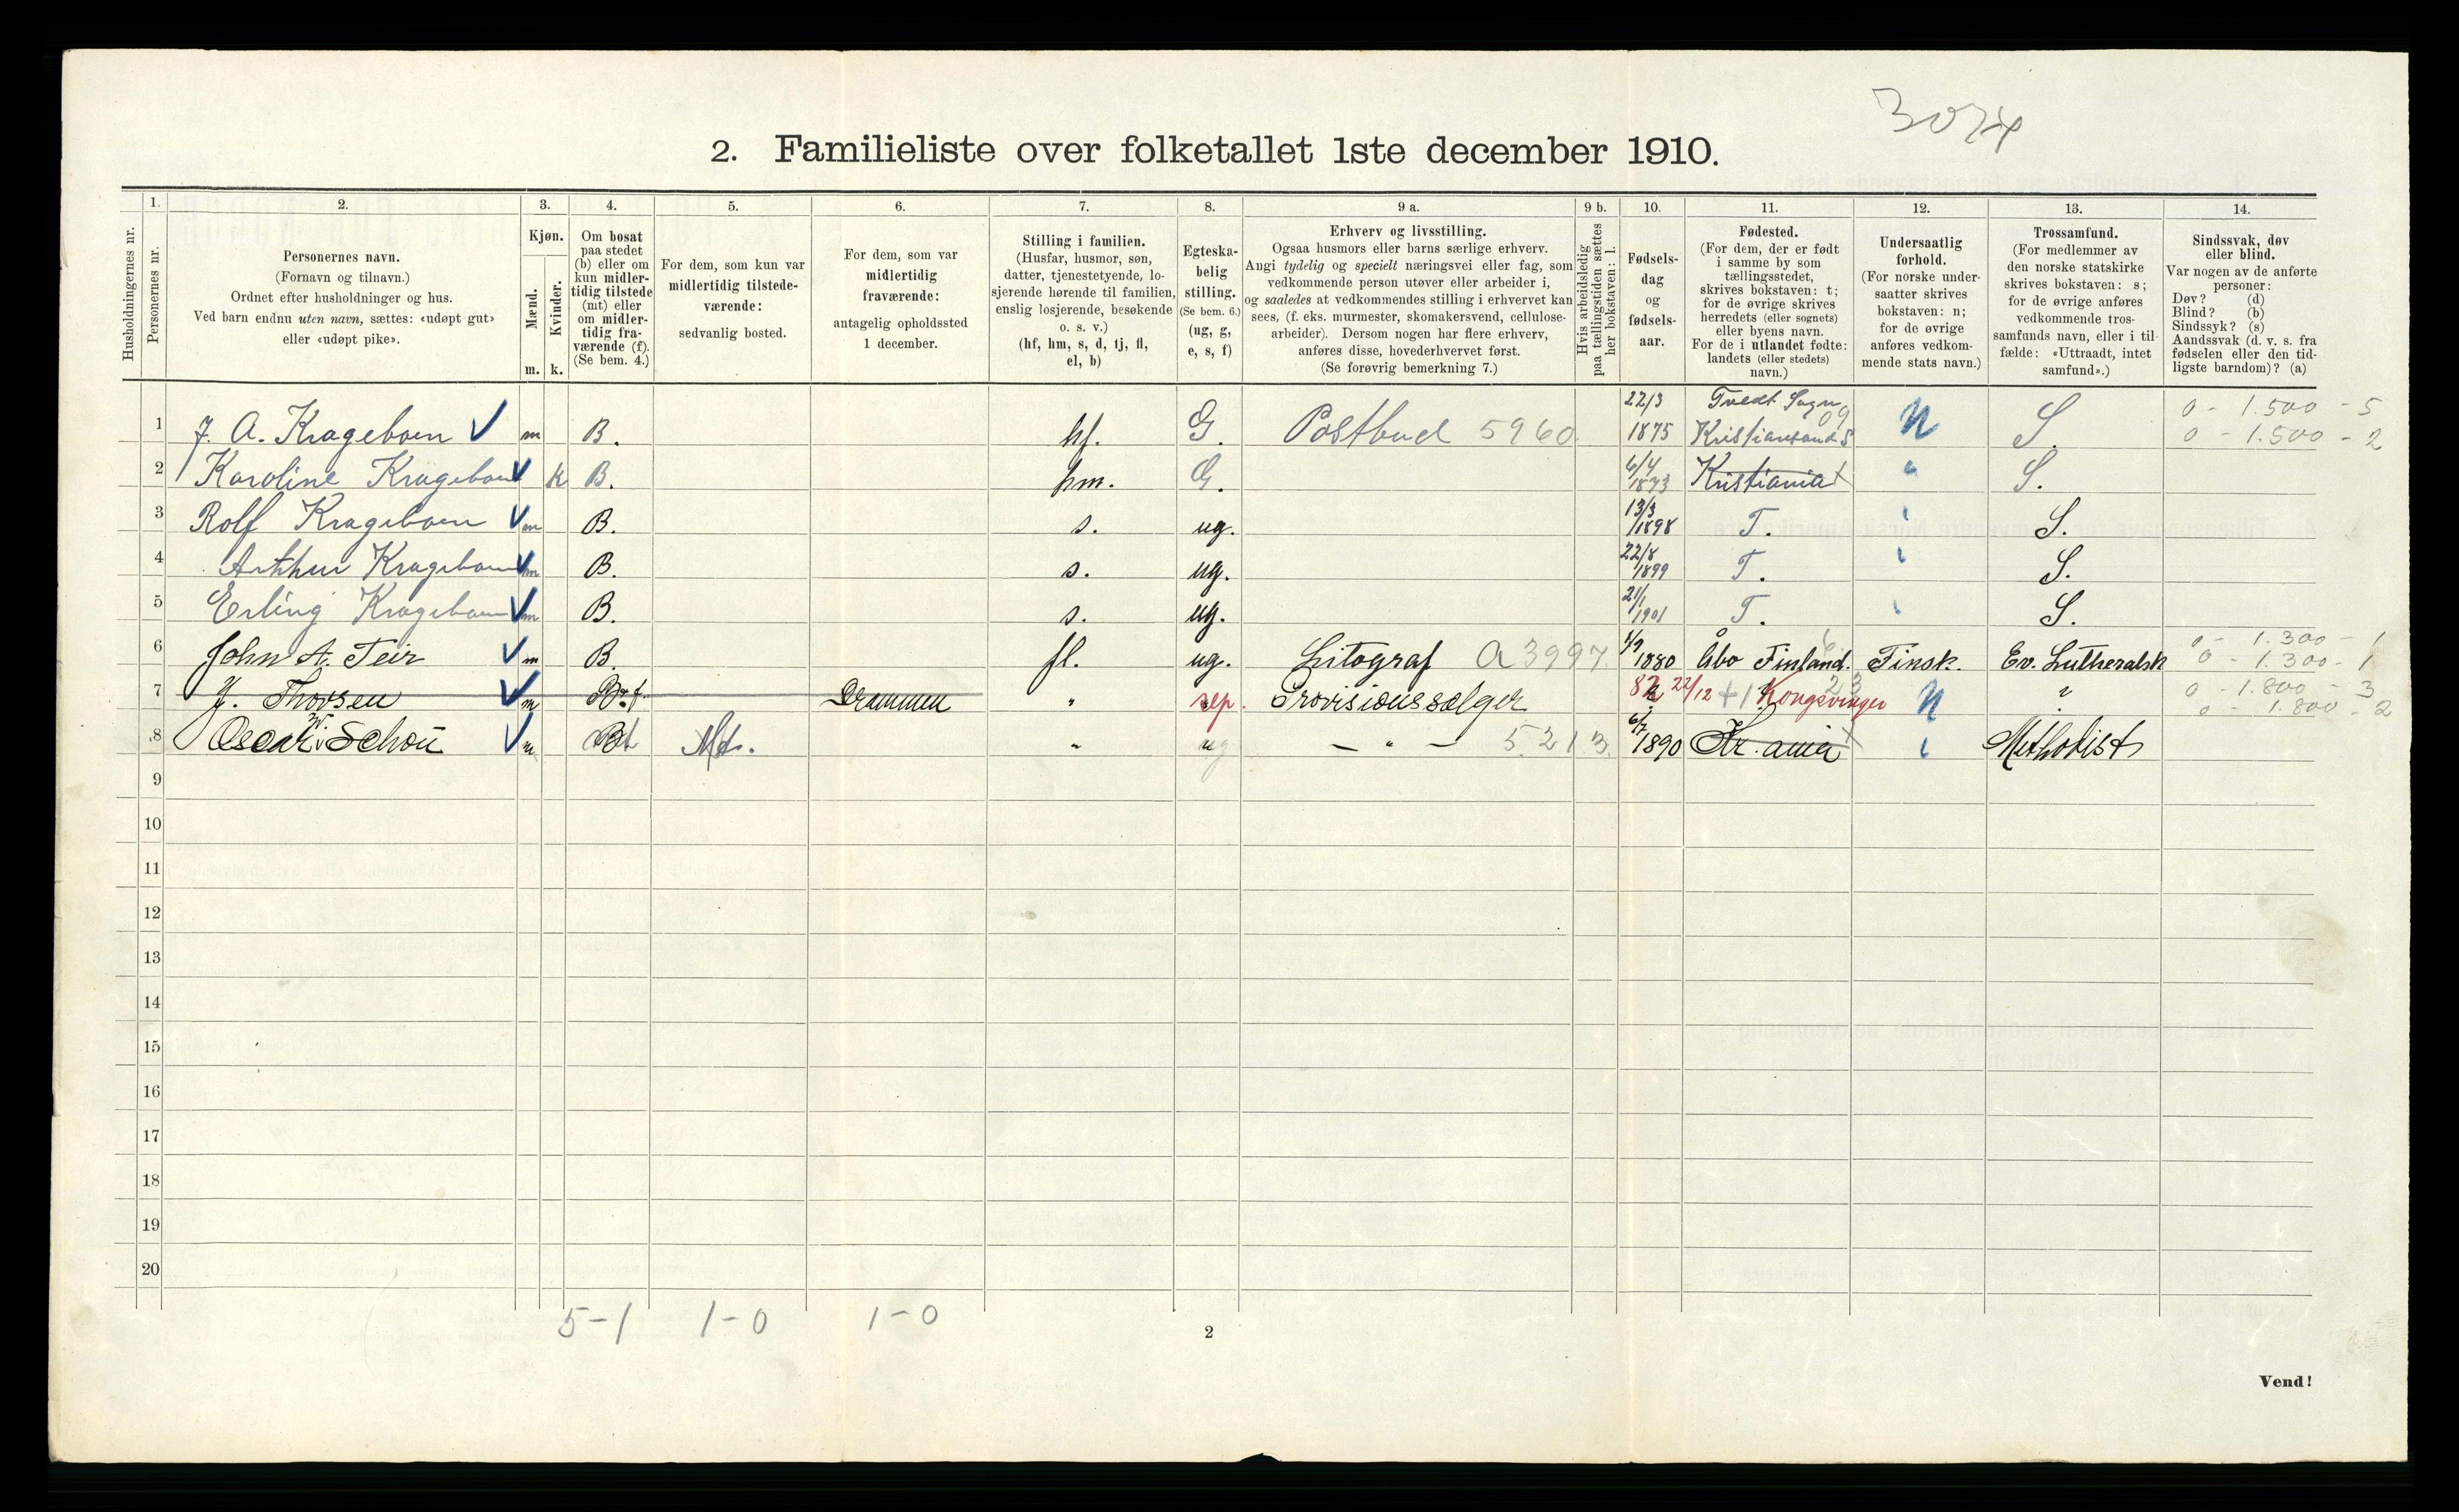 3024
2. Familieliste over folketallet 1ste december 1910.
Husholdningernes nr.
1. Personernes nr.
2. Personernes navn. (Fornavn og tilnavn.) Ordnet efter husholdninger og hus. Ved barn endnu uten navn, sættes: «udøpt gut» eller «udøpt pike».
3. Kjøn. Mænd. m. Kvinder. k.
4. Om bosat paa stedet (b) eller om kun midlertidig tilstede (mt) eller om midlertidig fraværende (f). (Se bem. 4.)
5. For dem, som kun var midlertidig tilstedeværende: sedvanlig bosted.
6. For dem, som var midlertidig fraværende: antagelig opholdssted 1 december.
7. Stilling i familien. (Husfar, husmor, søn, datter, tjenestetyende, losjerende hørende til familien, enslig losjerende, besøkende o. s. v.) (hf, hm, s, d, tj, fl, el, b)
8. Egteskabelig stilling. (Se bem. 6.) (ug, g, e, s, f)
9 a. Erhverv og livsstilling. Ogsaa husmors eller barns særlige erhverv. Angi tydelig og specielt næringsvei eller fag, som vedkommende person utøver eller arbeider i, og saaledes at vedkommendes stilling i erhvervet kan sees, (f. eks. murmester, skomakersvend, cellulosearbeider). Dersom nogen har flere erhverv, anføres disse, hovederhvervet først. (Se forøvrig bemerkning 7.)
9 b. Hvis arbeidsledig paa tællingstiden sættes her bokstaven: l.
10. Fødselsdag og fødselsaar.
11. Fødested. (For dem, der er født i samme by som tællingsstedet, skrives bokstaven: t; for de øvrige skrives herredets (eller sognets) eller byens navn. For de i utlandet fødte: landets (eller stedets) navn.)
12. Undersaatlig forhold. (For norske undersaatter skrives bokstaven: n; for de øvrige anføres vedkommende stats navn.)
13. Trossamfund. (For medlemmer av den norske statskirke skrives bokstaven: s; for de øvrige anføres vedkommende trossamfunds navn, eller i tilfælde: «Uttraadt, intet samfund».)
14. Sindssvak, døv eller blind. Var nogen av de anførte personer: Døv? (d) Blind? (b) Sindssyk? (s) Aandssvak (d. v. s. fra fødselen eller den tidligste barndom)? (a)
1 J. A. Krageboen m B. hf. G. Postbud 5960 22/3 1875 Tvedt Sogn 09 Kristiansand S N S. 0 - 1.500 - 5 0 - 1.500 - 2
2 Karoline Krageboen k B. hm. G. 6/4 1873 Kristiania " S.
3 Rolf Krageboen m B. s. ug. 13/3 1898 T. " S.
4 Arthur Krageboen m B. s. ug. 22/8 1899 T. " S.
5 Erling Krageboen m B. s. ug. 21/1 1901 T. " S.
6 John A. Teir m B. fl. ug. Litograf A 3997 1/9 1880 Åbo Finland. 6 Finsk. Ev. Lutheralsk 0 - 1.300 - 1 0 - 1.300 - 1
7 J. Thorsen m B. f. Drammen " sep. Provisionssælger 82 22/12 + 1 Kongsvinger 23 N ? 0 - 1.800 - 3 0 - 1.800 - 2
8 Oscar W. Schou m Mt. " ug — " — 5213 6/7 1890 Kr.ania " Methodist
9
10
11
12
13
14
15
16
17
18
19
20
5-1 1-0 1-0
2
Vend!